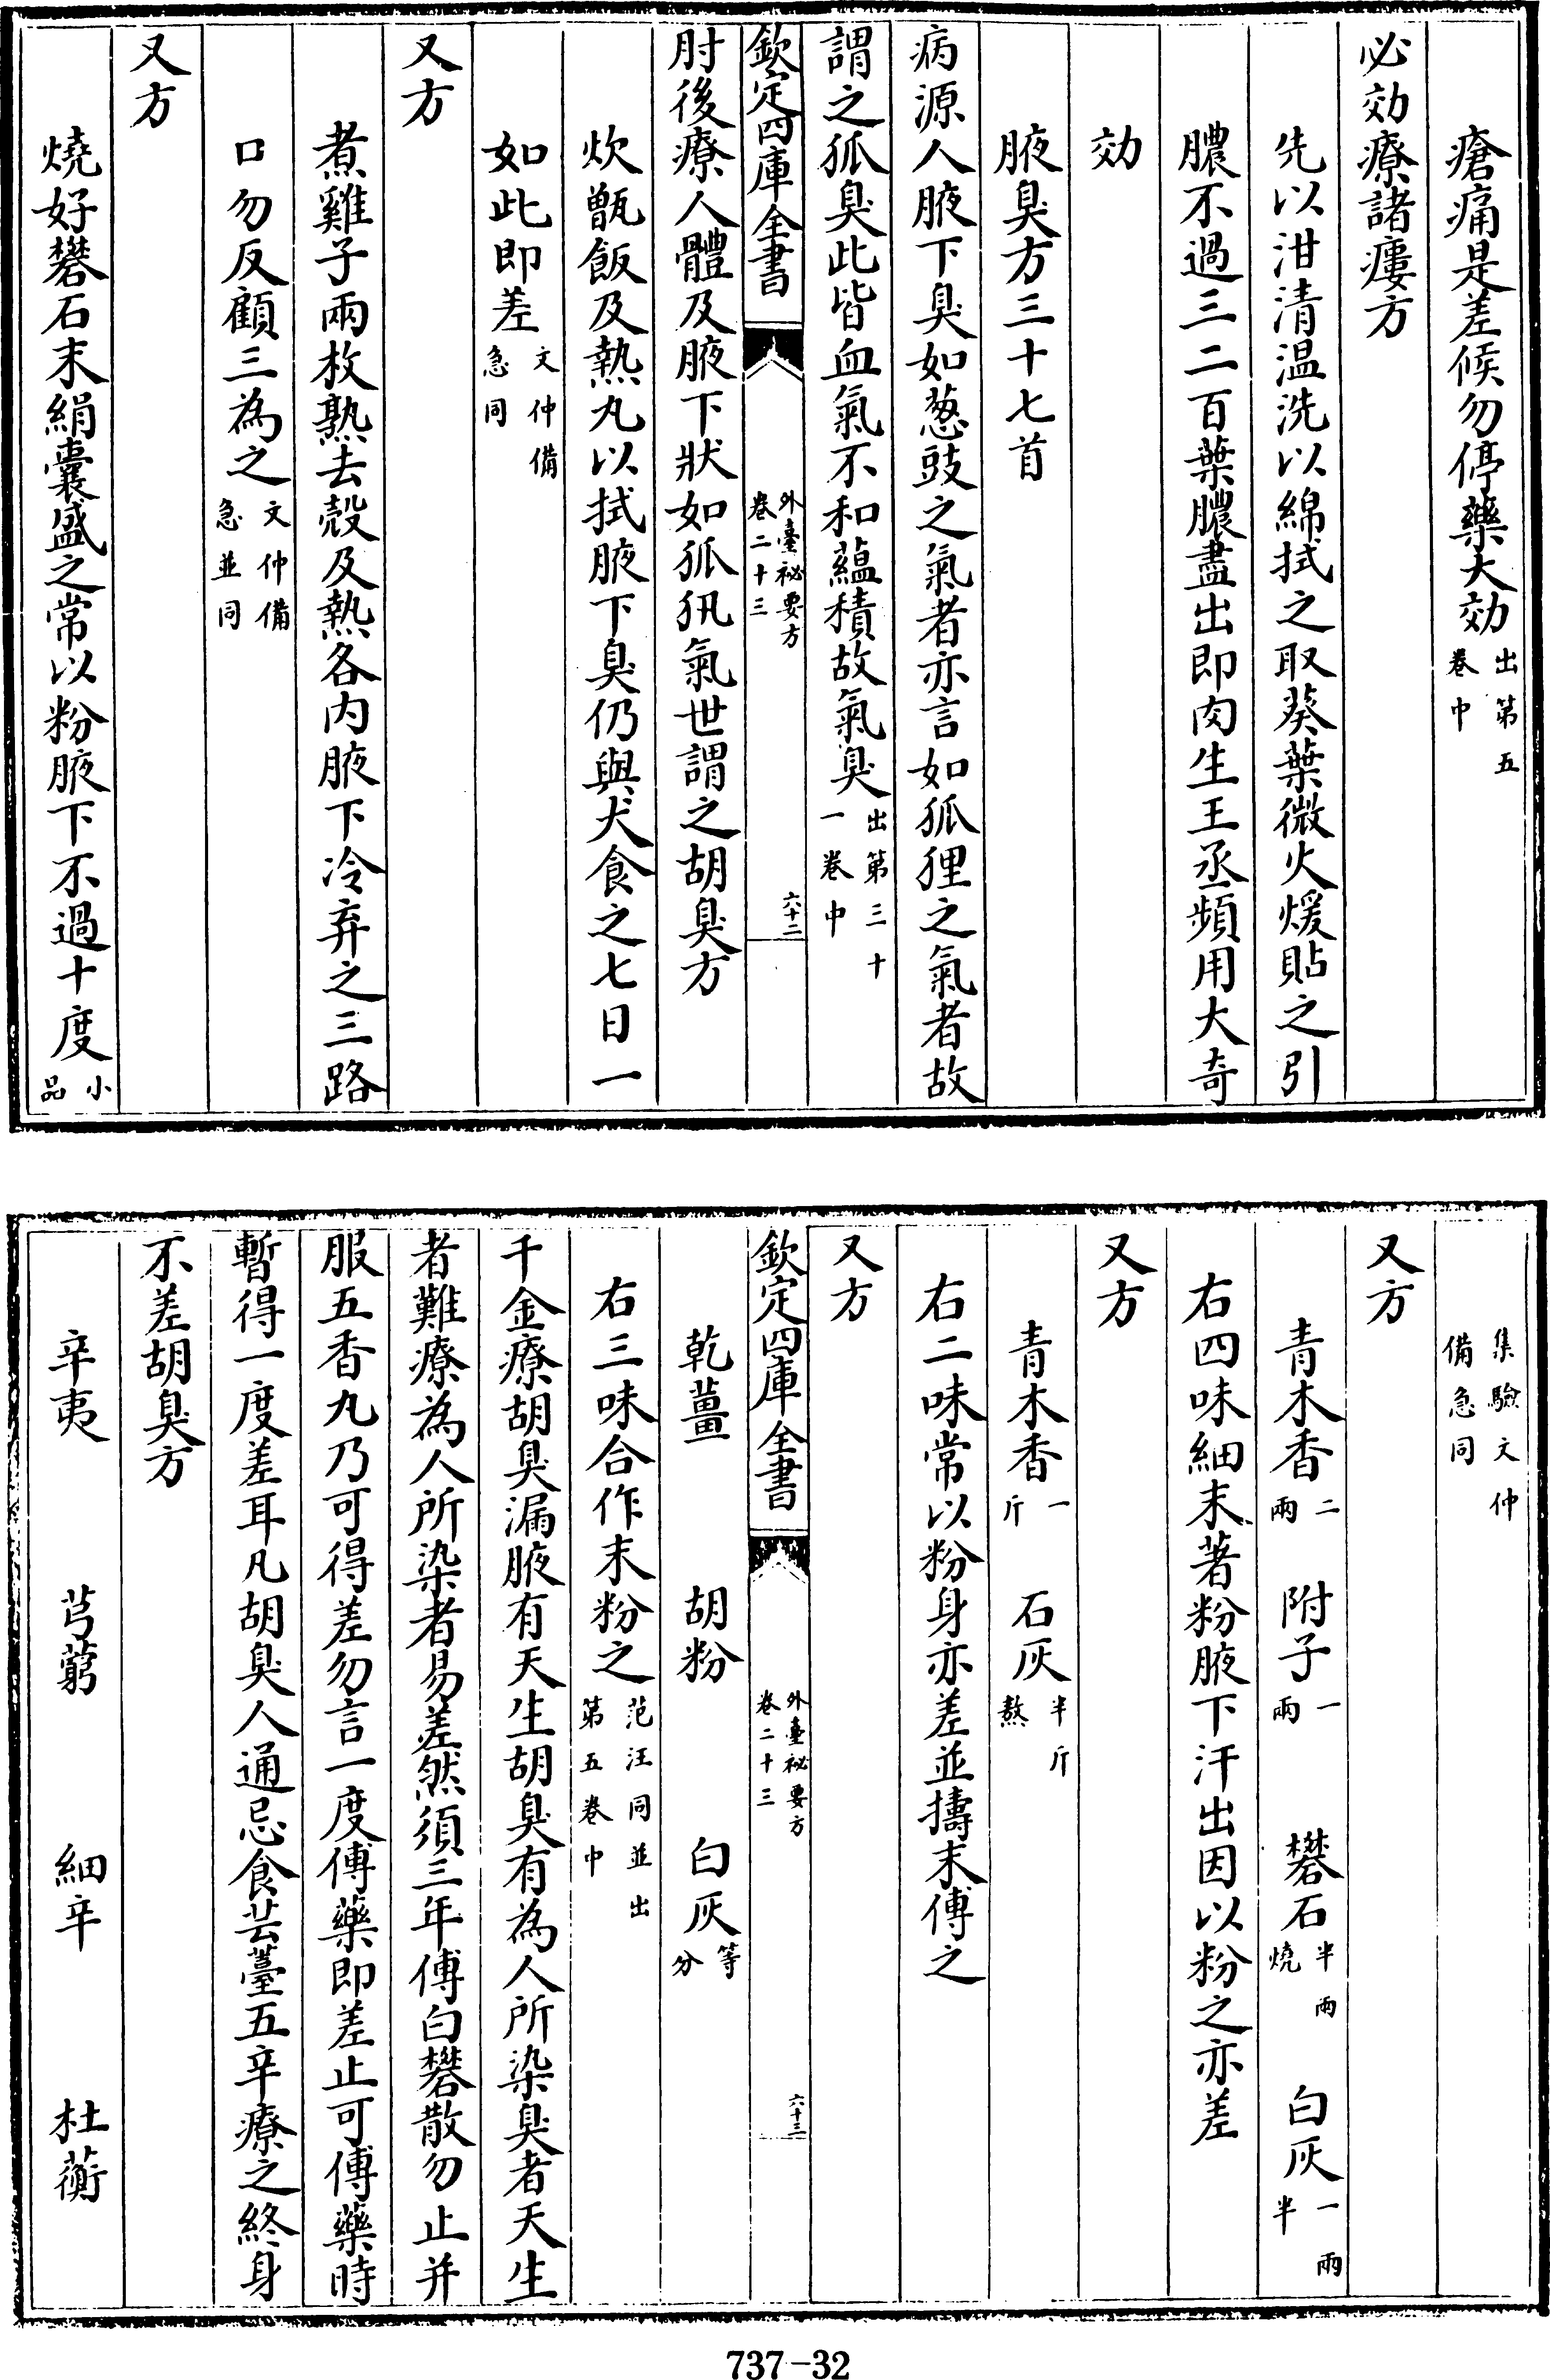 瘡痛是差候勿停藥大効出第五卷中
必効療諸瘻方
先以泔清温洗以綿拭之取葵葉微火煖貼之引
膿不過三二百葉膿盡出即肉生王丞頻用大奇
効
腋臭方三十七首
病源人腋下臭如葱豉之氣者亦言如狐狸之氣者故
謂之狐臭此皆血氣不和蘊積故氣臭出第三十一卷中
欽定四庫全書 外臺祕要方卷二十三 六十二
肘後療人體及腋下狀如狐犼氣世謂之胡臭方
炊甑飯及熱丸以拭腋下臭仍與犬食之七日一
如此即差文仲備急同
又方
煮雞子兩枚熟去殼及熱各内腋下冷弃之三路
口勿反顧三為之文仲備急並同
又方
燒好礬石末絹囊盛之常以粉腋下不過十度小品
集驗文仲備急同
又方
青木香二兩 附子一兩 礬石半兩燒 白灰一兩半
右四味細末著粉腋下汗出因以粉之亦差
又方
青木香一斤 石灰半斤熬
右二味常以粉身亦差並擣末傅之
又方
欽定四庫全書 外臺祕要方卷二十三 六十三
乾薑 胡粉 白灰等分
右三味合作末粉之范汪同並出第五卷中
千金療胡臭漏腋有天生胡臭有為人所染臭者天生
者難療為人所染者易差然須三年傅白礬散勿止并
服五香丸乃可得差勿言一度傅藥即差止可傅藥時
暫得一度差耳凡胡臭人通忌食芸薹五辛療之終身
不差胡臭方
辛夷 芎藭 細辛 杜蘅
737-32